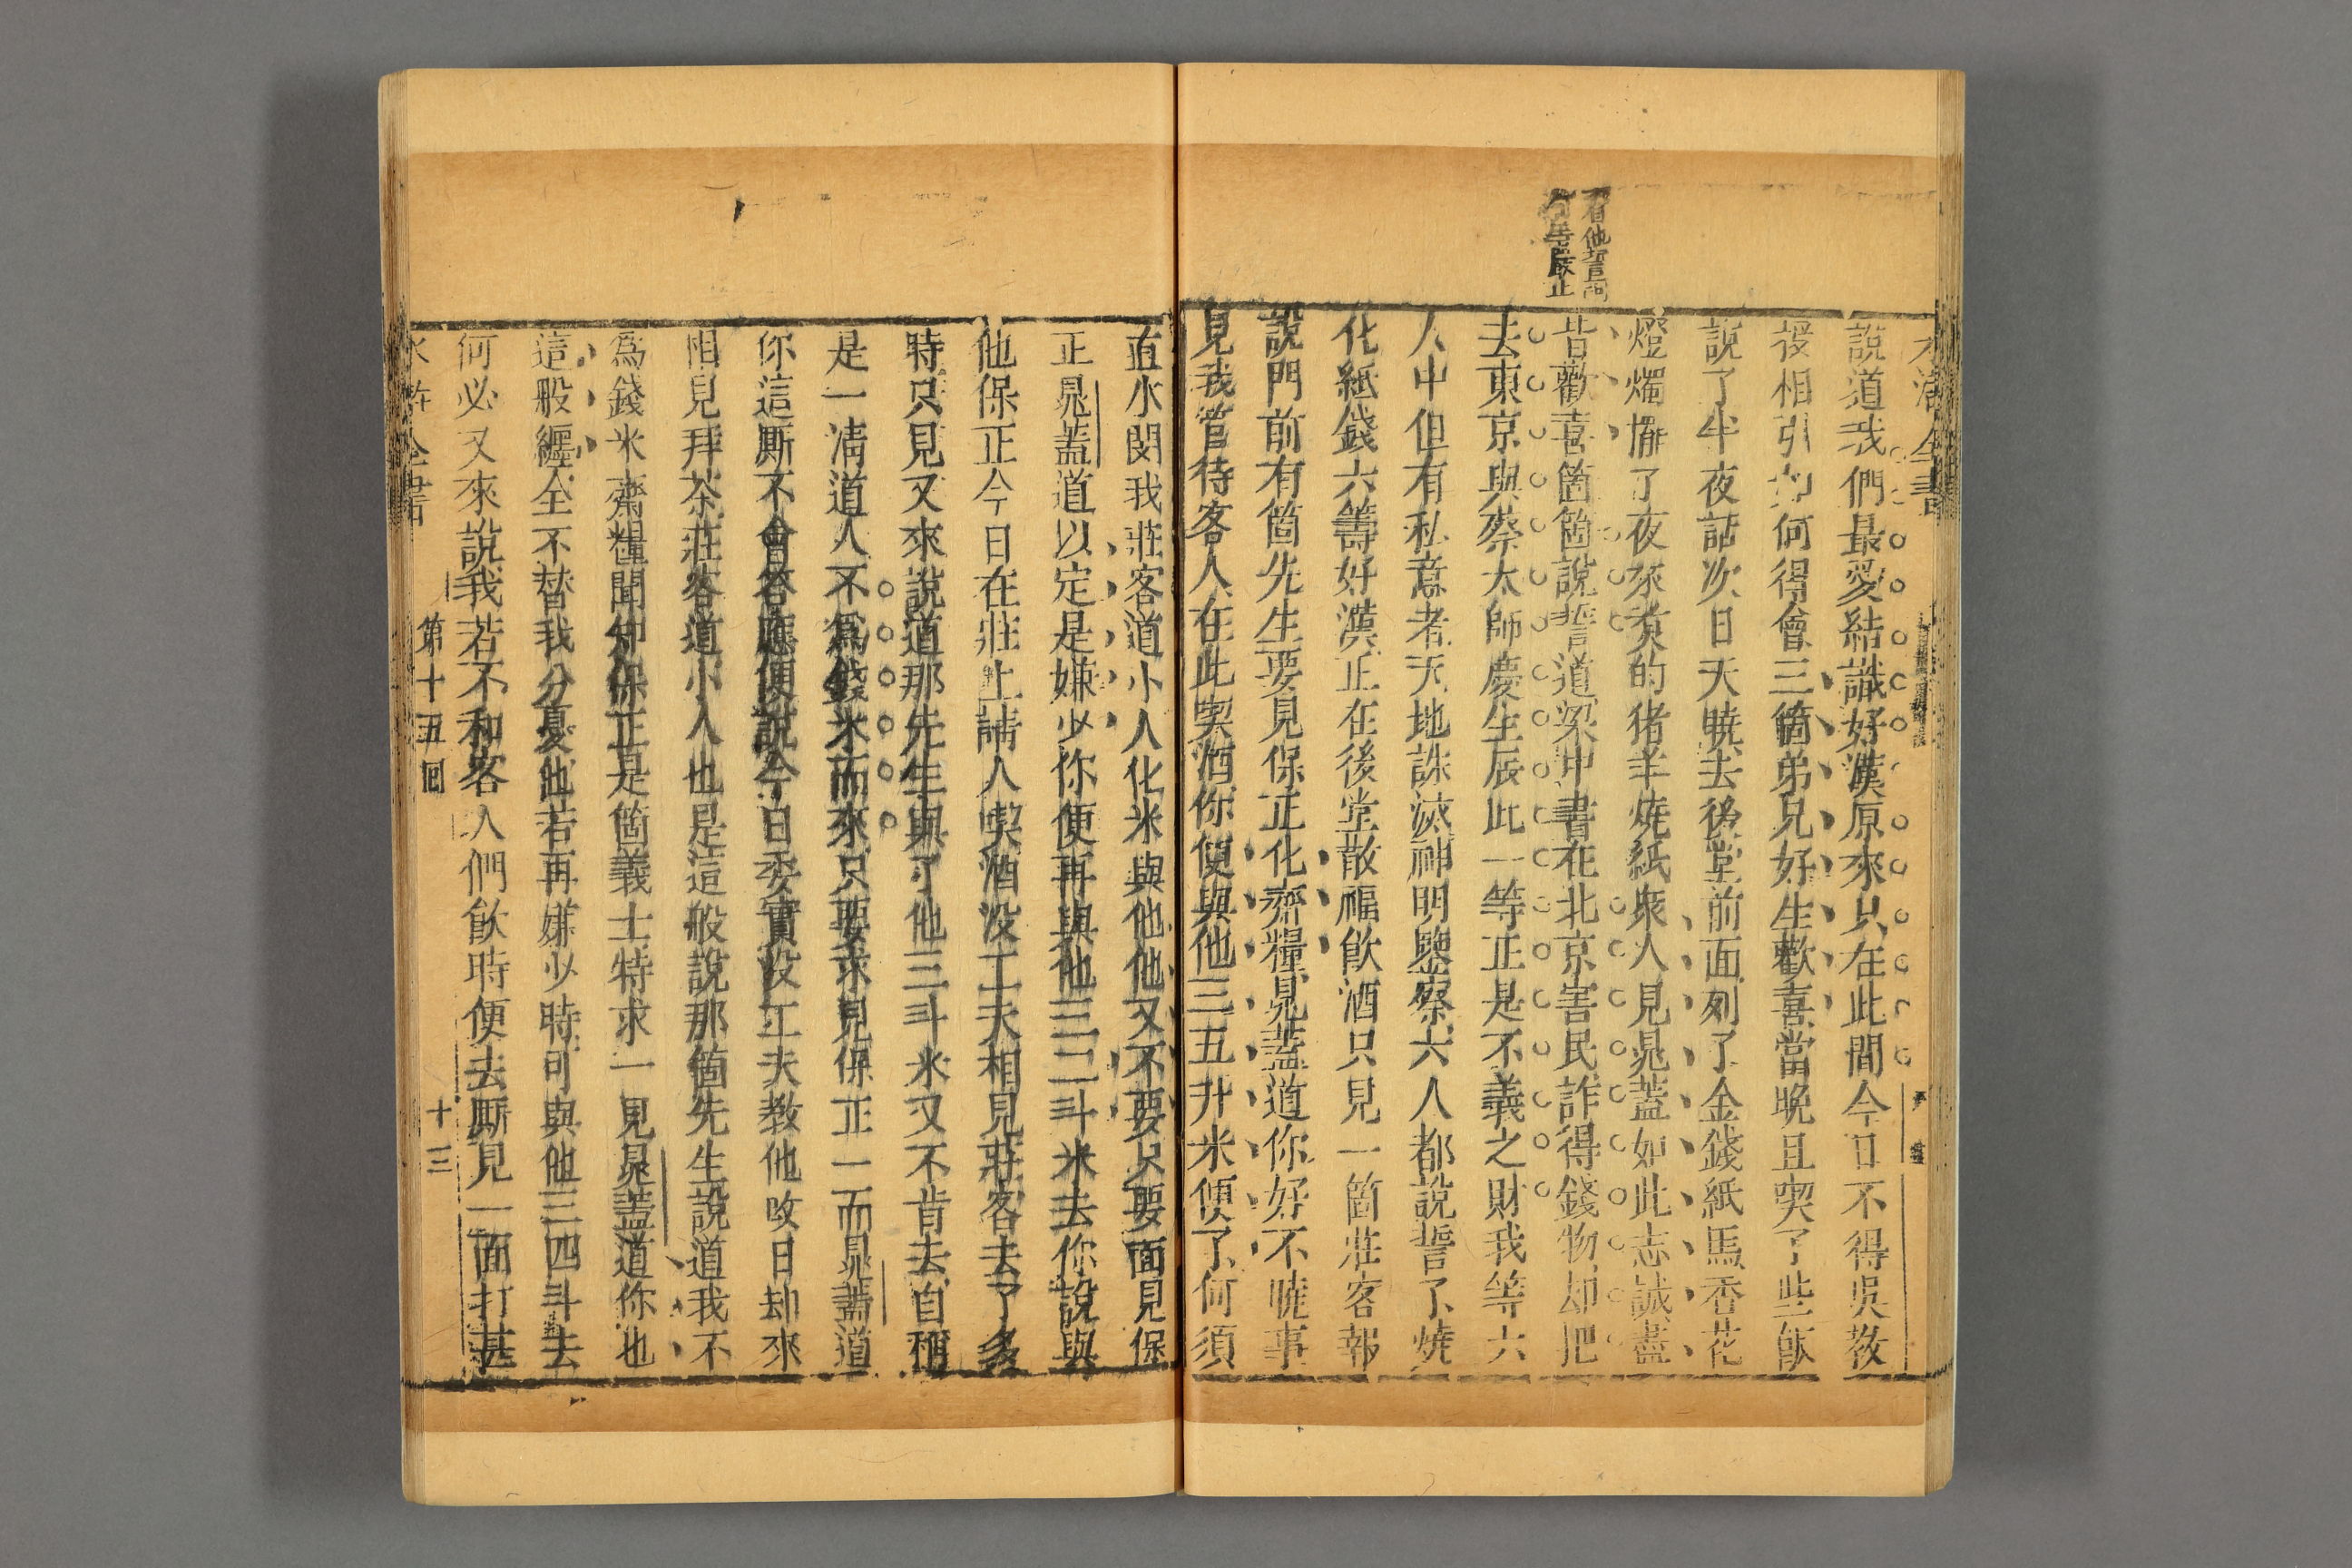 看他誓詞
何等嚴正
說道我們最愛結識好漢原來只在此間今日不得吳教
授相引如何得會三箇弟兄好生歡喜當晚且喫了些飯
說了半夜話次日天曉去後堂前面列了金錢紙馬香花
燈燭擺了夜來煮的猪羊燒紙衆人見晁蓋如此志誠盡
皆歡喜箇箇說誓道梁中書在北京害民詐得錢物却把
去東京與蔡太師慶生辰此一等正是不義之財我等六
人中但有私意者天地誅滅神明鑒察六人都說誓了燒
化紙錢六籌好漢正在後堂散福飲酒只見一箇莊客報
說門前有箇先生要見保正化齋糧晁蓋道你好不曉事
見我管待客人在此喫酒你便與他三五升米便了何須
直來問我莊客道小人化米與他他又不要只要面見保
正晁蓋道以定是嫌少你便再與他三二斗米去你說與
他保正今日在莊上請人喫酒沒工夫相見莊客去了多
時只見又來說道那先生與了他三斗米又不肯去自稱
是一清道人不爲錢米而來只要求見保正一面晁蓋道
你這厮不會答應便說今日委實沒工夫教他改日却來
相見拜茶莊客道小人也是這般說那箇先生說道我不
爲錢米齋糧聞知保正是箇義士特求一見晁蓋道你也
這般纏全不替我分憂他若再嫌少時可與他三四斗去
何必又來說我若不和客人們飲時便去厮見一面打甚
水滸全書
第十五囘
十三